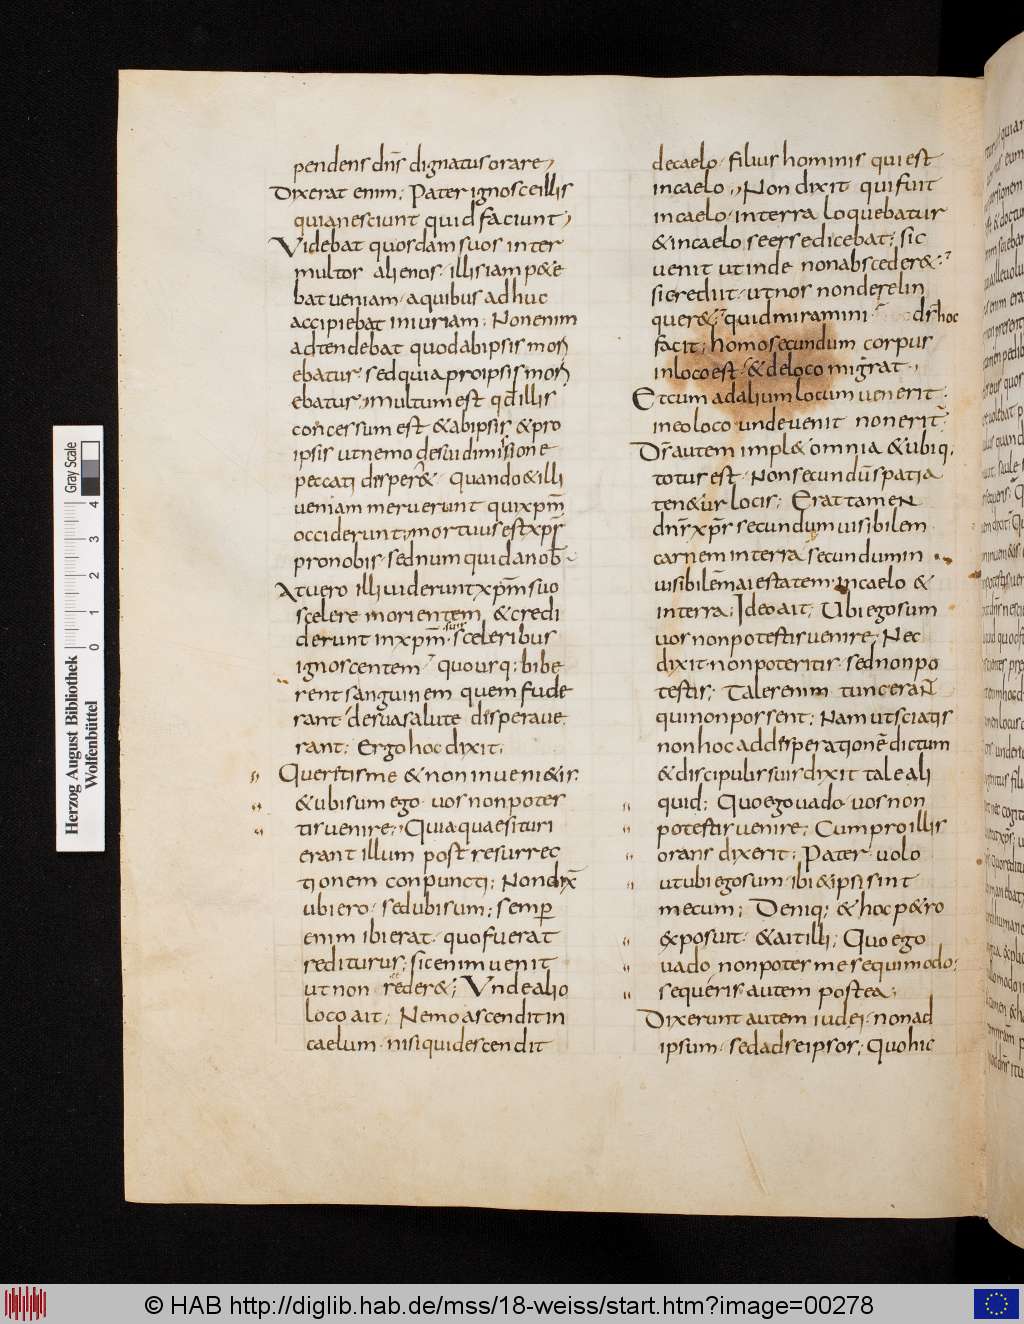 pendens dn̄s dignatus orare,
Dixerat enim; Pater ignosce illis
quia nesciunt quid faciunt,
Videbat quosdam suos inter
multos alienos· illis iam p&e
bat ueniam· a quibus adhuc
accipiebat iniuriam; Non enim
adtendebat quod ab ipsis mori
ebatur· sed quia pro ipsis mori
ebatur; multum est qd̄ illis
concessum est & ab ipsis & pro
ipsis ut nemo de sui dimisione
peccati disper&· Quando & illi
ueniam meruerunt qui xp̄m
occiderunt; mortuus est xp̄s
pro nobis· sed numquid a nob̄·
At uero illi uiderunt xp̄m suo
scelere morientem & credi
derunt in xp̄m· suis sceleribus
ignoscentem· quousq; bibe
rent sanguinem quem fude
rant· de sua salute disperaue
rant; Ergo hoc dixit;
Queritis me & non inueni&is·
& ubi sum ego· uos non potes
tis uenire; Quia quaesituri
erant illum post resurrec
tionem conpuncti; Non dix̄
ubi ero· sed ubi sum; semp̄
enim ibi erat· quo fuerat
rediturus; sic enim uenit
ut non reder&; Unde alio
loco ait; Nemo ascendit in
caelum· nisi qui descendit
de caelo· filius hominis qui est
in caelo; Non dixit qui fuit
in caelo· in terra loquebatur
& in caelo se esse dicebat; sic
uenit ut inde non absceder&;
sic rediit· ut nos non derelin
quer&; quid miramini· ds̄ hoc
facit; homo secundum corpus
in loco est· & de loco migrat·
Et cum ad alium locum uenerit·
in eo loco unde uenit non erit;
Ds̄ autem impl& omnia & ubiq;
totus est· Non secundū spatia
ten&ur locis; Erat tamen
dn̄s xp̄s secundum uisibilem
carnem in terra secundum in
uisibilem̄ maiestatem· in caelo &
in terra; Ideo ait; Ubi ego sum
uos non potestis uenire; Nec
dixit· non poteritis· sed non po
testis; Tales enim tunc eran̄
qui non possent; Nam ut sciatis
non hoc ad disperationē dictum
& discipulis suis dixit tale ali
quid; Quo ego uado· uos non
potestis uenire; Cum pro illis
orans dixerit; Pater uolo
ut ubi ego sum· ibi & ipsi sint
mecum; Deniq; & hoc p&ro
exposuit· & ait illi; Quo ego
uado, non potes me sequi modo;
sequeris autem postea;
Dixerunt autem iudei· non ad
ipsum· sed ad se ipsos; Quo hic
Herzog August Bibliothek
Wolfenbüttel
0 1 2 3 4 Gray Scale
© HAB http://diglib.hab.de/mss/18-weiss/start.htm?image=00278